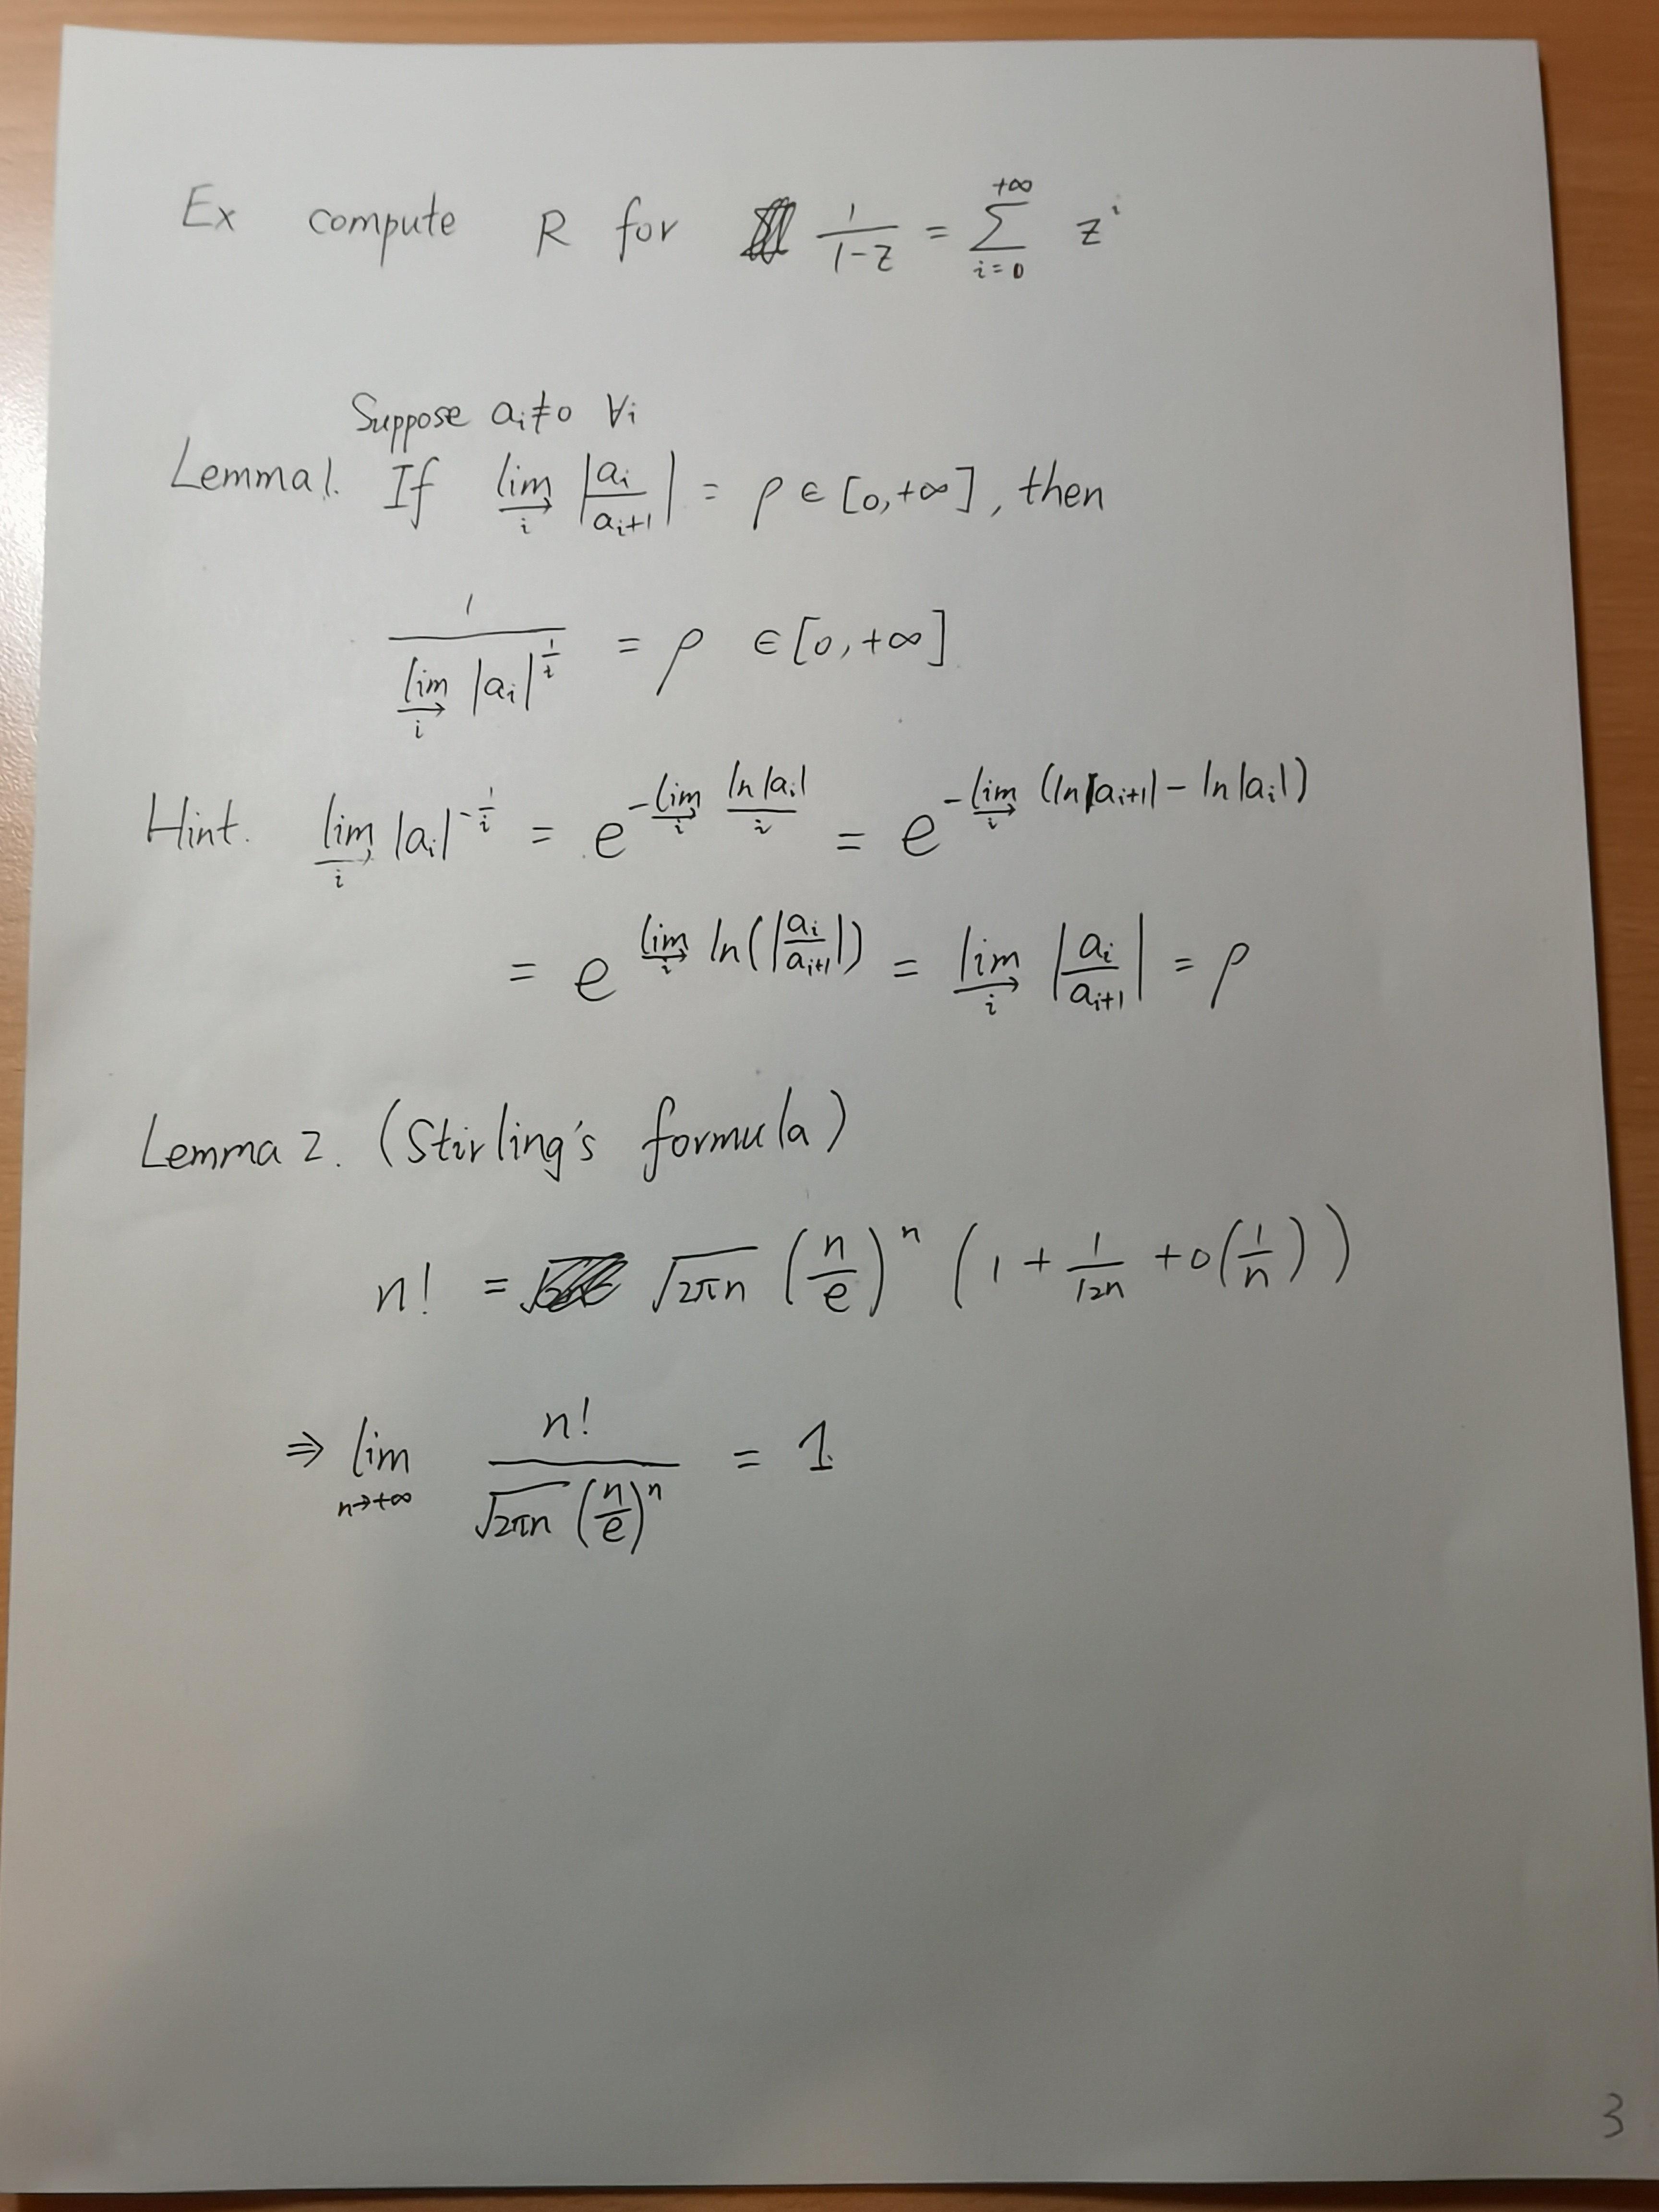 Ex compute R for 1/(1-z) = ∑_{i=0}^{+∞} z^i
Suppose a_i≠0 ∀i
Lemma 1. If lim_{→ i} |a_i/a_{i+1}| = ρ ∈ [0,+∞], then
1/(lim_{→ i} |a_i|^{1/i}) = ρ ∈ [0,+∞]
Hint. lim_{→ i} |a_i|^{-1/i} = e^{-lim_{→ i} ln|a_i|/i} = e^{-lim_{→ i} (ln|a_{i+1}| - ln|a_i|)}
= e^{lim_{→ i} ln(|a_i/a_{i+1}|)} = lim_{→ i} |a_i/a_{i+1}| = ρ
Lemma 2. (Stirling's formula)
n! = √(2πn) (n/e)^n (1 + 1/(12n) + o(1/n))
⇒ lim_{n→+∞} n!/(√(2πn) (n/e)^n) = 1
3